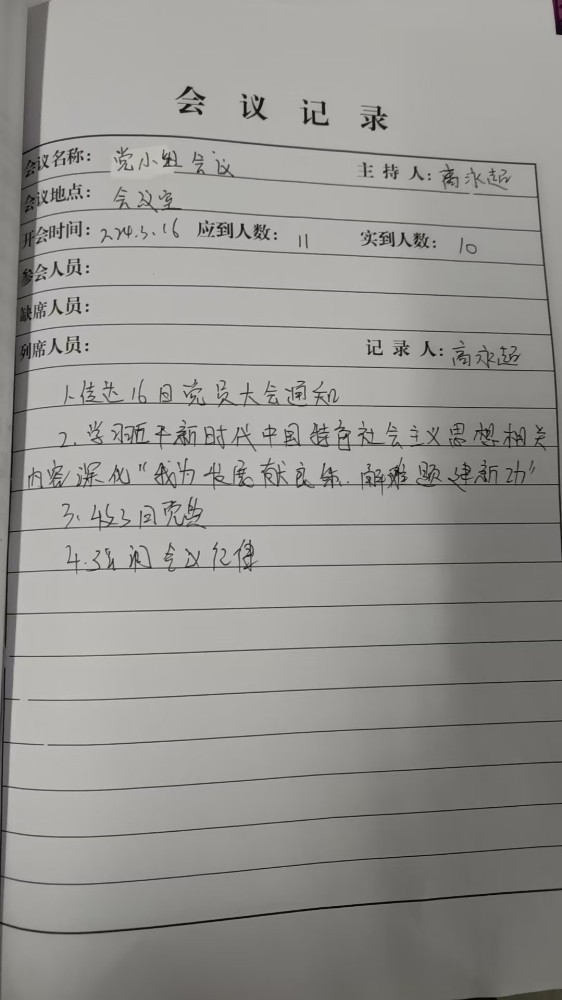 会议记录
会议名称：党小组会议 主持人：高永超
会议地点：会议室
开会时间：224.3.16 应到人数：11 实到人数：10
参会人员：
缺席人员：
列席人员： 记录人：高永超
1.传达16日党员大会通知
2.学习近平新时代中国特色社会主义思想相关
内容深化“我为发展献良策、解难题建新功”
3.收3月党费
4.强调会议纪律